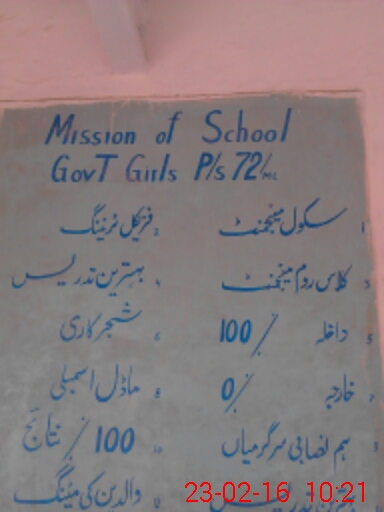 Mission of School
Govt Girls P/s 72/ML
1 سکول مینجمنٹ 2 فزیکل ٹریننگ
3 کلاس روم مینجمنٹ 4 بہترین تدریس
5 داخلہ 100 / 6 شجرکاری
7 خارجہ 0/ 8 ماڈل اسمبلی
9 ہم نصابی سرگرمیاں 10 100 / نتائج
12 والدین کی میٹنگ
23-02-16 10:21